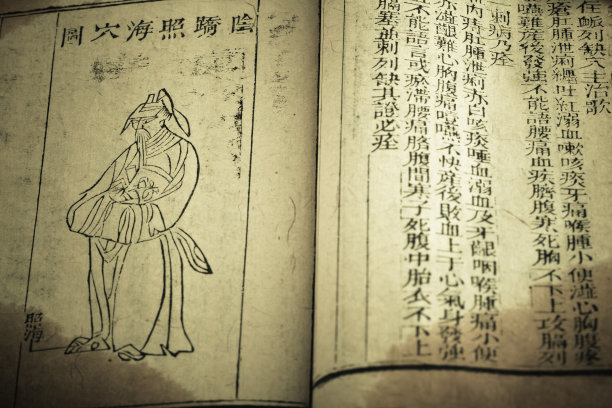 陰蹻照海穴圖
照海
列缺穴主治歌
瘡肛腫泄痢纏吐紅溺血嗽咳痰牙痛喉腫小便澁心胸腹疼
噎難產後發強不能語腰痛血疾臍腹寒死不下上攻膈
刺病乃痊
內痔肛腫泄痢赤白咳痰唾血溺血及牙齦咽喉腫痛小便
亦澁難心胸腹痛噎嚥不快產後敗血上于心氣身發強
不能言語或瘀滯腰痛臍腹間寒子死腹中胎衣不下上
膈塞並刺列缺其證必痊